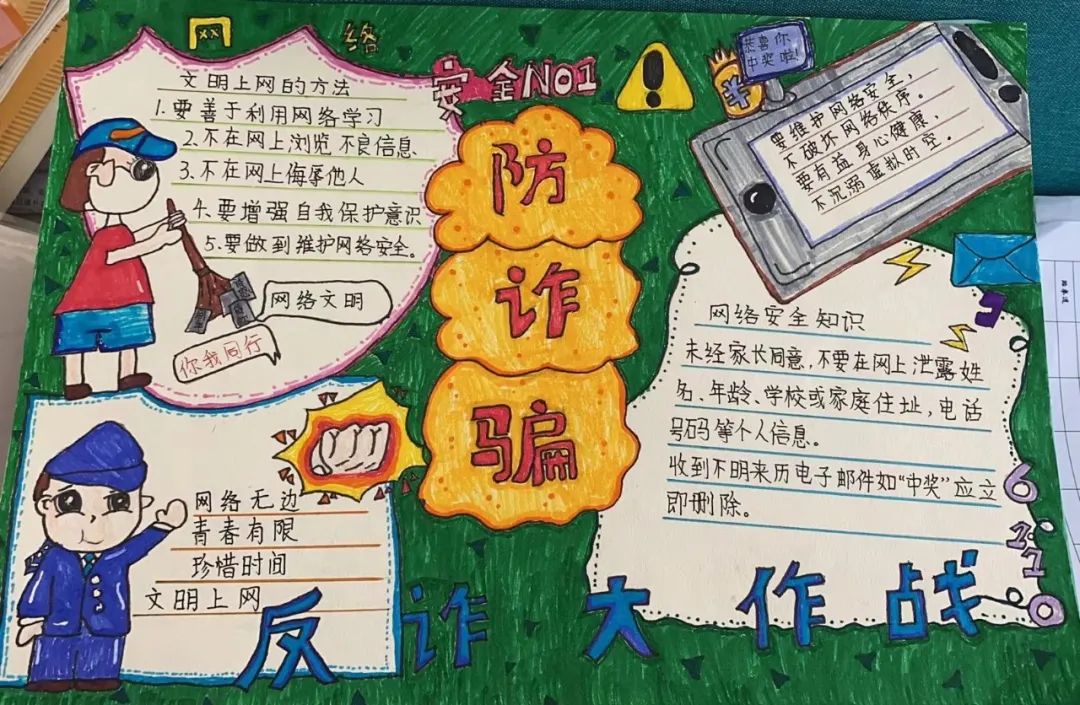 网络
安全NO1
文明上网的方法
1.要善于利用网络学习
2.不在网上浏览不良信息
3.不在网上侮辱他人
4.要增强自我保护意识
5.要做到维护网络安全。
网络文明
你我同行
防
诈
骗
恭喜你
中奖啦!
要维护网络安全,
不破坏网络秩序。
要有益身心健康,
不沉溺虚拟时空。
网络安全知识
未经家长同意,不要在网上泄露姓
名、年龄、学校或家庭住址,电话
号码等个人信息。
收到不明来历电子邮件如“中奖”应立
即删除。
网络无边
青春有限
珍惜时间
文明上网
反诈大作战